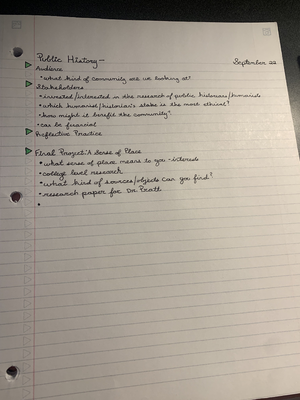 Public History-
September 22
Audience
• what kind of community are we looking at?
Stakeholders
• invested/interested in the research of public historians/humanists
• which humanist/historian's stake is the most ethical?
• how might it benefit the community?
• can be financial
Reflective Practice
Final Project: A Sense of Place
• what sense of place means to you - interests
• college level research
• what kind of sources/objects can you find?
• research paper for Dr. Pratt
•